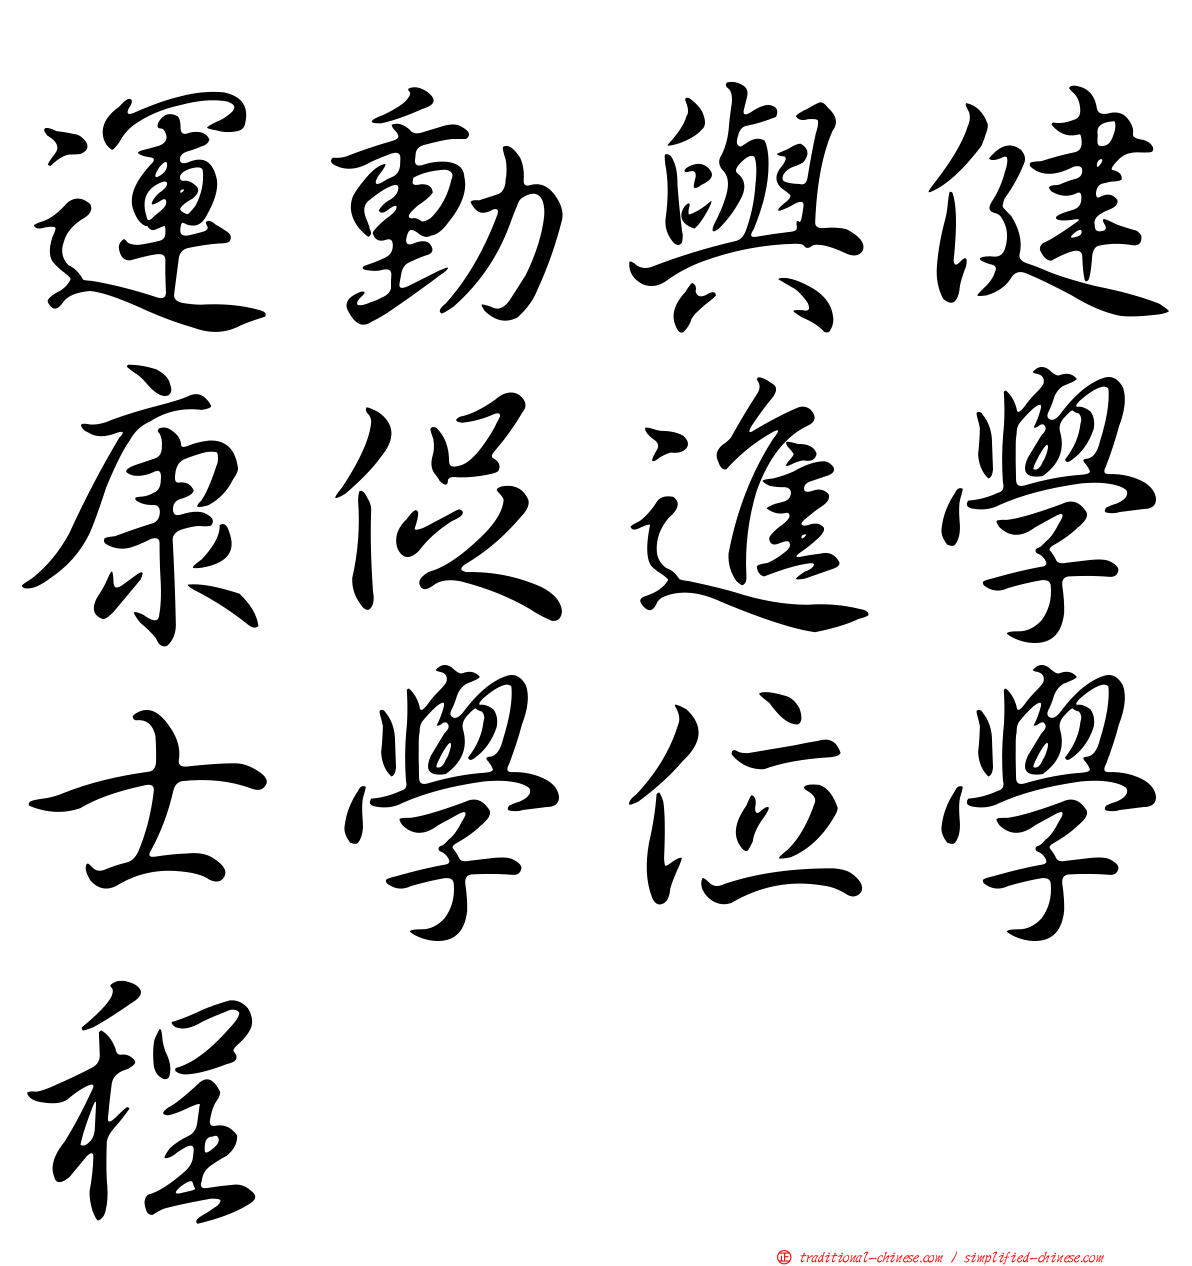 運動與健
康促進學
士學位學
程
正 traditional-chinese.com / simplified-chinese.com